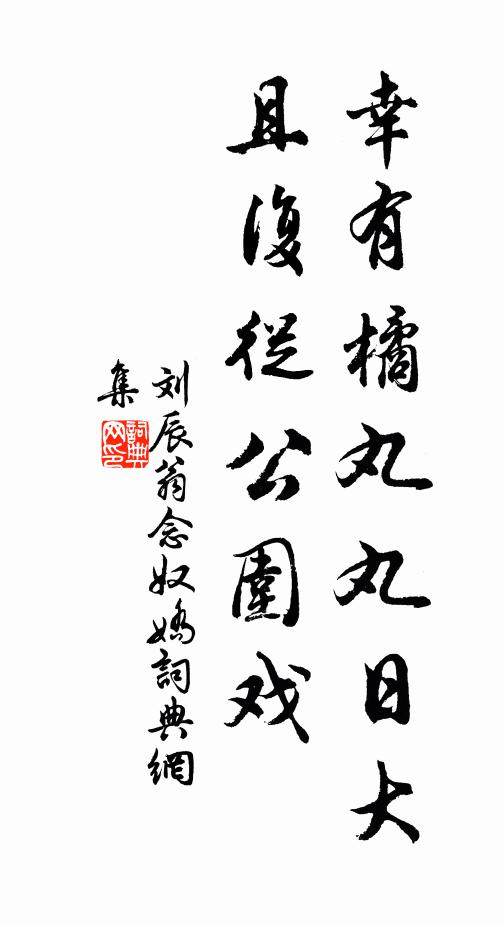 幸有橘丸丸日大
且復從公圍戏
刘辰翁念奴嬌詞典網
集
詞典网印